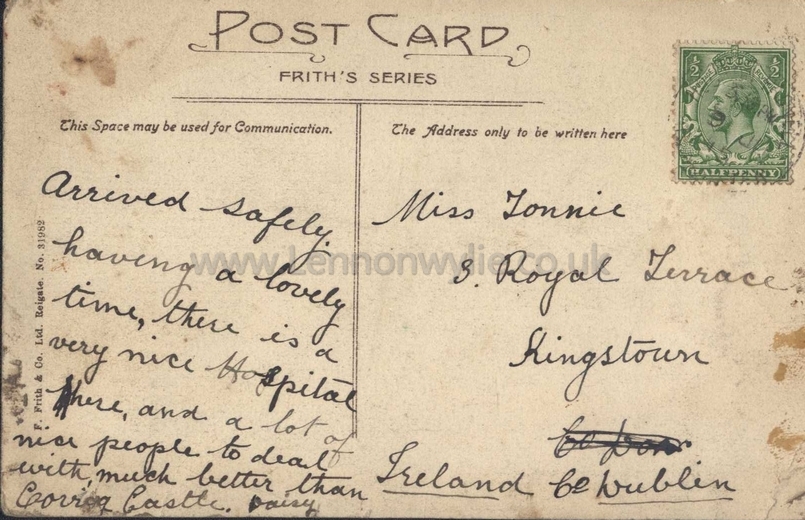 POST CARD
FRITH'S SERIES
This Space may be used for Communication.
The Address only to be written here
HALFPENNY
Arrived safely.
having a lovely
time, there is a
very nice Hospital
here, and a lot of
nice people to deal
with, much better than
Castle. Daisy
F. Frith & Co. Ltd. Reigate. No. 31982
Miss Tonnie
3. Royal Terrace
Kingstown
Co Down
Ireland Co Dublin
www.Lennonwylie.co.uk